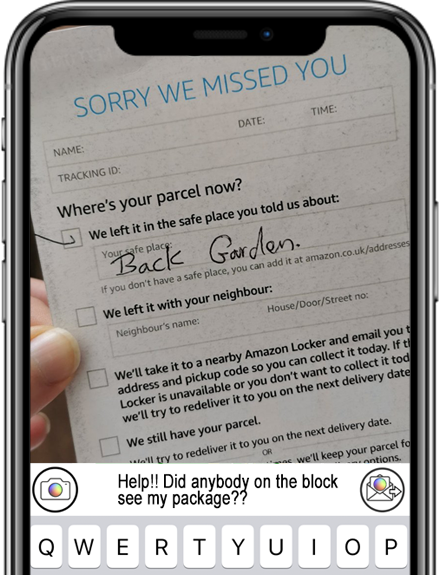 SORRY WE MISSED YOU
NAME:
DATE:
TIME:
TRACKING ID:
Where's your parcel now?
We left it in the safe place you told us about:
Your safe place:
Back Garden.
If you don't have a safe place, you can add it at amazon.co.uk/addresses
We left it with your neighbour:
Neighbour's name:
House/Door/Street no:
We'll take it to a nearby Amazon Locker and email you
address and pickup code so you can collect it today. If
Locker is unavailable or you don't want to collect it
we'll try to redeliver it to you on the next delivery date
We still have your parcel.
We'll try to redeliver it to you on the next delivery date.
OR
we'll keep your parcel
options.
Help!! Did anybody on the block
see my package??
Q W E R T Y U I O P